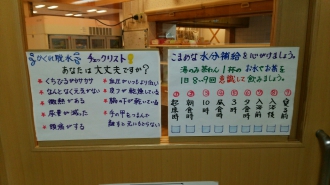 かくれ脱水 チェックリスト!
あなたは大丈夫ですか?
★ くちびるがカサカサ
★ なんとなく元気がない
★ 微熱がある
★ 尿量が減った
★ 頭痛がする
★ 血圧がいつもより低い
★ 口の中が乾いている
★ 脇の下が乾いている
★ 手の甲をつまんで離すと元にもどらない
こまめな水分補給を心がけましょう。
湯のみ茶わん1杯のお水やお茶を
1日8~9回意識して飲みましょう
① 起床時
② 朝食時
③ 10時
④ 昼食時
⑤ 3時
⑥ 夕食時
⑦ 入浴前
⑧ 入浴後
⑨ 寝る前